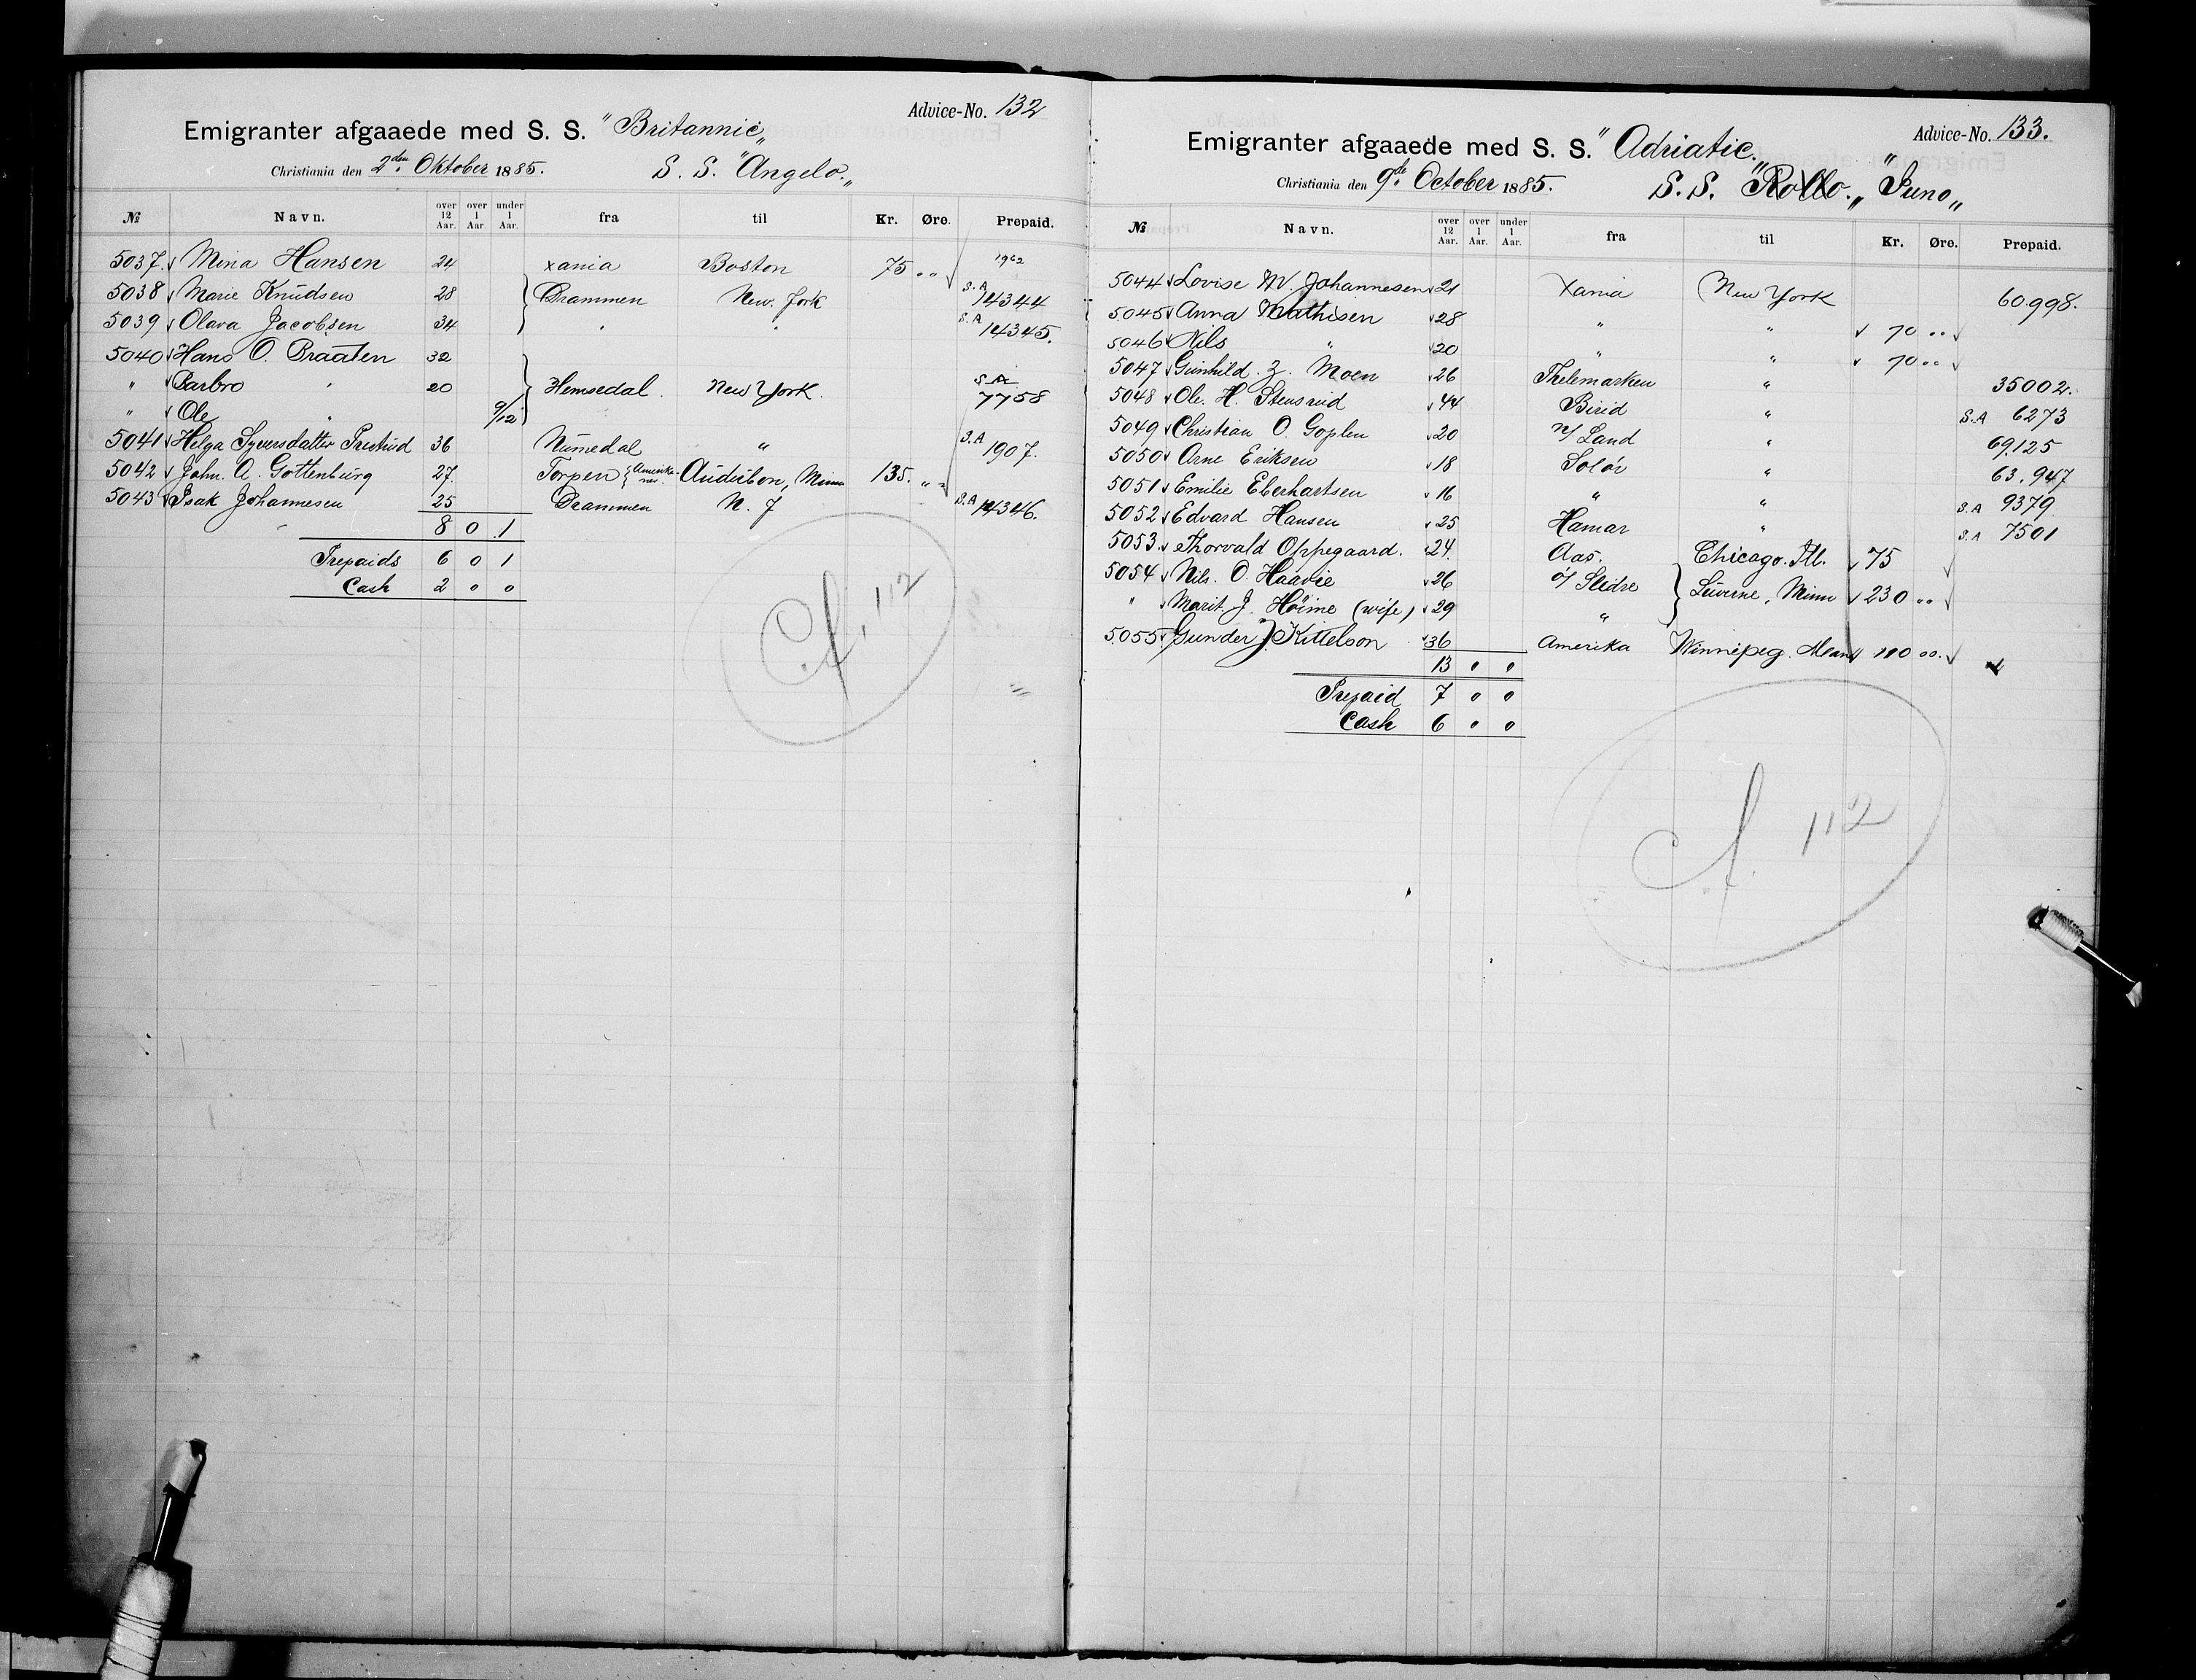 Advice-No. 132
Emigranter afgaaede med S. S. "Britannic"
Christiania den 2den Oktober 1885. S. S. "Angelo."
№ Navn. over 12 Aar. over 1 Aar. under 1 Aar. fra til Kr. Øre. Prepaid.
5037. Mina Hansen 24 Xania Boston 75 " " 1962
5038 Marie Knudsen 28 Drammen New. York S.A 14344
5039 Olava Jacobsen 34 " " S.A 14345.
5040 Hans O. Braaten 32
" Barbro " 20 Hemsedal. New York. S.A 7758
" Ole " 9/12
5041 Helga Syversdatter 36 Numedal " S.A 1907.
5042 John. A. Gottenburg 27. Torpen Audubon, Minn 135. " "
5043 Isak Johannesen 25 Drammen N. Y S.A 14346.
8 0 1
Prepaids 6 0 1
Cash 2 0 0
112
Advice-No. 133.
Emigranter afgaaede med S. S. "Adriatic."
Christiania den 9de October 1885. S. S. "Rollo." "Juno"
№ Navn. over 12 Aar. over 1 Aar. under 1 Aar. fra til Kr. Øre. Prepaid.
5044 Lovise W. Johannesen 21 Xania New York 60.998.
5045 Anna Mathisen 28 " " 70 " "
5046 Nils " 20 " " 70 " "
5047 Gunhild. Z. Moen 26 Thelemarken " 35002.
5048 Ole. H. Stensrud 44 Birid " S.A 6273
5049 Christian O. Goplen 20 Land " 69,125
5050 Arne Eriksen 18 Solør " 63.947
5051 Emilie Eberhartsen 16 " " S.A 9379
5052 Edvard Hansen 25 Hamar " S.A 7501
5053. Thorvald Oppegaard. 24. Aas. Chicago. Ill. 75
5054 Nils. O. Haavie 26 Slidre Luverne, Minn 230 " "
" Marit J. Höime (wife) 29 "
5055 Gunder J. Kittelson 36 Amerika Winnipeg. Man 110 " "
13 0 0
Prepaid 7 0 0
Cash 6 0 0
112